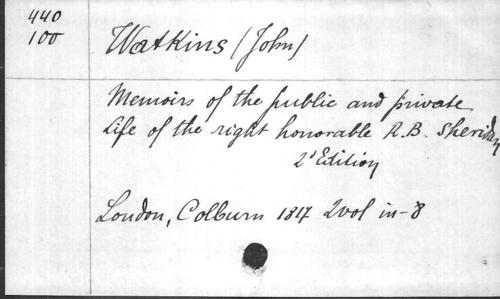 440
100
Watkins (John)
Memoirs of the public and private
Life of the right honorable R.B. Sheridan
2d Edition
London, Colburn 1817 2 vol in-8